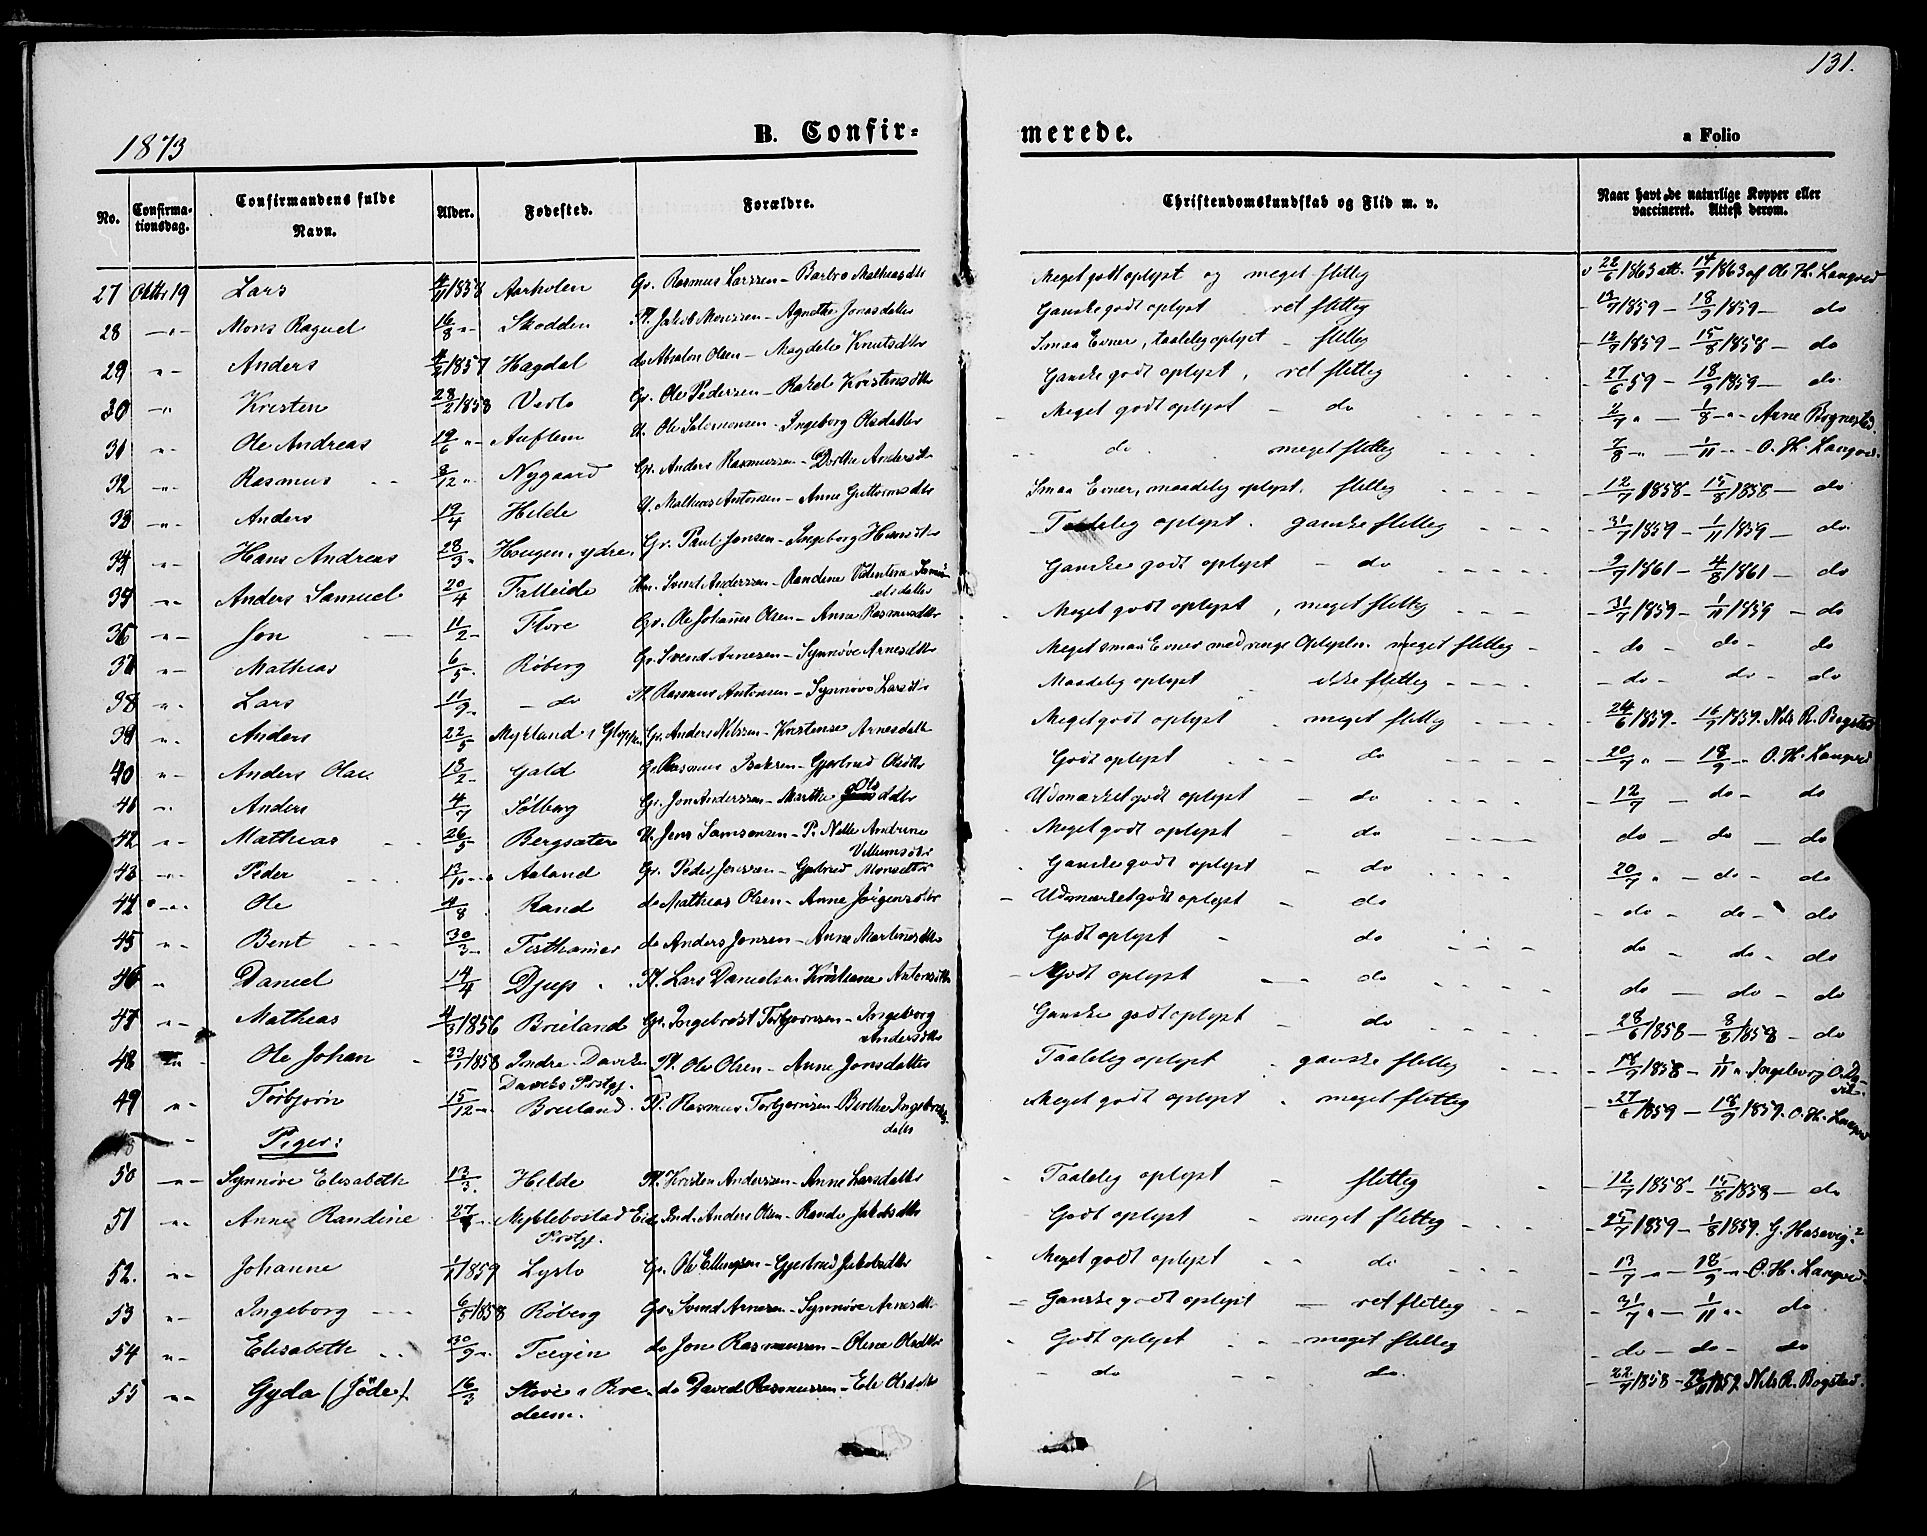 131.
1873
B. Confir-
merede.
a Folio
No.
Confirma-
tionsdag.
Confirmandens fulde
Navn.
Alder.
Fødested.
Forældre.
Christendomskundskab og Flid m. v.
Naar havt de naturlige Kopper eller
vaccineret. Attest derom.
27 Oktbr 19 Lars Aarholen Gr. Rasmus Larssen - Barbro Mathiasdtr Meget godt oplyst og meget flittig 22/6 1863 att. 14/9 1863 af Ole H. Langved
28 -"- Mons Raguel 16/8 "- Skodden Pl. Jakob Monssen - Agnethe Jonasdatter Ganske godt oplyst ret flittig - 13/7 1859 - 18/9 1859 - do
29 "- Anders 1857 Hagdal do Absalon Olsen - Magdele Knutsdtr Smaa Evner, taalelig oplyst - flittig - 12/7 1859 - 15/8 1858 - do
30 -" Kristen 28/2 1858 Vedlo Gr. Ole Pedersen - Rakel Kristensdtr Ganske godt oplyst, ret flittig - 27/6 59 - 18/9 1859 - do.
31 "- Ole Andreas 19/6 "- Auflem Ole Salomonsen - Ingeborg Olsdatter Meget godt oplyst - do - 2/7 " - 1/8 "- Arne Bognestad
32 -"- Rasmus 8/12 "- Nygaard Gr. Anders Rasmussen - Dorthe Andersdtr do meget flittig 7/8 " - 1/11 "- O. H. Langved.
33 -"- Anders 19/4 Hilde Mathias Antonsen - Anne Guttormsdtr Smaa Evner, maadelig oplyst. flittig - 12/7 1858 - 15/8 1858 - do
34 -"- Hans Andreas 28/3 " Haugen, ydre Gr. Paul Jonsen - Ingeborg Hansdtr Taalelig oplyst. ganske flittig - 31/7 1859 - 1/11 1859 - do
35 -"- Anders Samuel 20/4 Falleide Svend Anderssen - Randine Valentine Samu-
elsdatter Ganske godt oplyst - do - 9/7 1861 - 4/8 1861 - do
36 -"- Jon 11/2 - Flore Gr. Ole Johannes Olsen - Anne Rasmusdtr Meget godt oplyst, meget flittig - 31/7 1859 - 1/11 1859 - do
37 "- Mathias 6/5 - Røberg Gr. Svend Arnesen - Synnøve Arnesdtr Meget smaa Evner med ringe Oplysn. meget flittig - do - do - do
38 "- Lars 11/9 " - do Pl. Rasmus Antonsen - Synnøve Larsdtr Maadelig oplyst ikke flittig - do - do - do
39 "- Anders 22/5 Mykland i Gloppen Gr. Anders Nilssen - Kristense Arnesdtr Meget godt oplyst meget flittig - 24/6 1859 - 16/9 1859. Nils R. Bogstad
40 -"- Anders Olai 13/2 - Gald Gr. Rasmus Isaksen - Gjertrud Olsdtr Godt oplyst do - 20/7 " - 18/9 " O. H. Langved
41 -"- Anders 4/7 Solberg Gr. Jon Anderssen - Marthe Olsdtr Udmærket godt oplyst - do - 12/7 - do - do
42 "- Mathias 26/5 - Bergsæter Jens Samsonsen - P. Nille Andrine
Villumsdtr Meget godt oplyst - do do - do - do
43 -"- Peder 13/10 - Aaland Gr. Peder Jenssen - Gjertrud Monsdtr Ganske godt oplyst - do 20/7 " - do - do
44 -"- Ole Rand do Mathias Olsen - Anne Jørgensdtr Udmærket godt oplyst - do - do - do - do
45 "- Bent 30/3 - Tisthamer do Anders Jonsen - Anne Martinusdtr Godt oplyst - do do - do - do
46 " Daniel 14/4 Djup Pl. Lars Danielsen Kristiane Antonsdtr Godt oplyst - do do - do - do
47 -"- Mathias 4/3 1856 Breiland Gr. Ingebrigt Torbjørnsen - Ingeborg
Andersdtr Ganske godt oplyst - do - 28/6 1858 - 8/8 1858 - do
48 Ole Johan 23/1 1858 Indre-Daviken
Davikens Prstgj. Pl. Ole Olsen - Anne Jonsdatter Taalelig oplyst ganske flittig - 1858 - 1/11 " Ingeborg O.
49 "- Torbjørn 15/12 - Breiland. Pl. Rasmus Torbjørnsen - Berthe Ingebrigts-
datter Meget godt oplyst meget flittig - 27/6 1859 - 18/9 1859. O. H. Langved
-"- Piger:
50 -"- Synnøve Elisabeth 13/3 Hilde Pl. Kristen Anderssen - Anne Larsdatter Taalelig oplyst - flittig - 12/7 1858 - 15/8 1858 - do
51 -"- Anne Randine 27/ - Myklebostad Eids
Prstgj. Ind. Anders Olsen - Rande Jakobsdtr Godt oplyst meget flittig - 25/7 1859 - 1/8 1859. G. Hasevig?
52. -"- Johanne 1859 Lyslo Gr. Ole Ellingsen - Gjertrud Jakobsdtr Meget godt oplyst do - 13/7 " - 18/9 "- O. H. Langved
53 "- Ingeborg 6/5 1858 Røberg Gr. Svend Arnesen - Synnøve Arnesdtr Ganske godt oplyst - ret flittig - 31/7 " - 1/11 "- do
54 "- Elisabeth 30/9 "- Teigen do Jon Rasmussen - Oline Olsdtr Godt oplyst meget flittig - do - do - do
55 -"- Gyda (Jøde) 16/3 Stove i Bre-
deim. do David Rasmussen - Eli Olsdatter do do. - 22/7 1858 - 1859 Nils R. Bogstad.